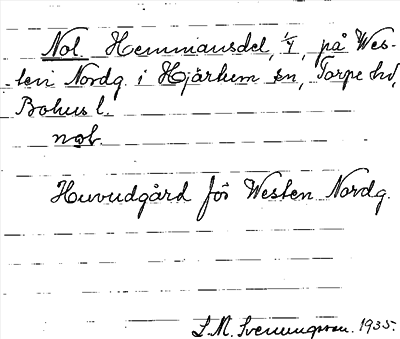 Nol. Hemmansdel, 1/4, på Wes-
ten Nordg. i Hjärtum sn, Torpe hd,
Bohusl.
nol.
Huvudgård för Westen Nordg.
S. M. Svenungsson. 1935.